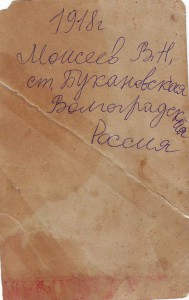 1918г
Моисеев В.Н,
ст. Букановская
Волгоградская
Россия